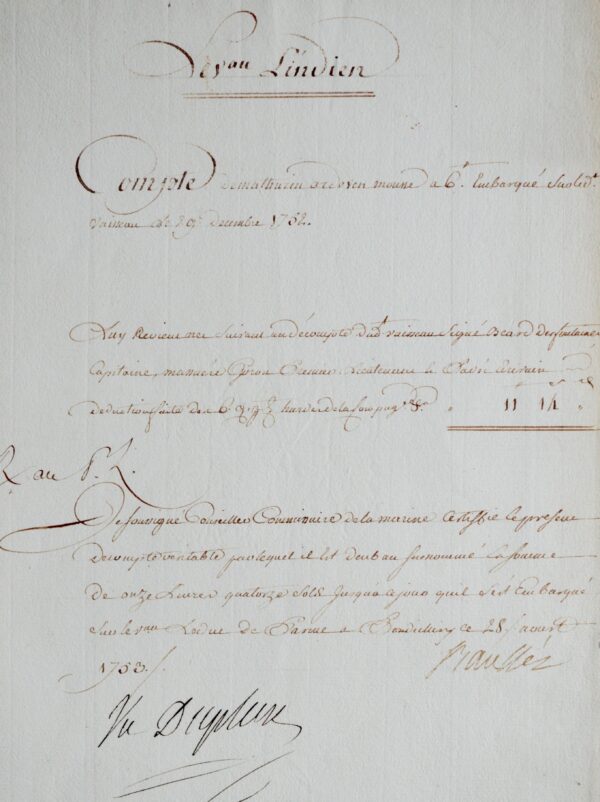 Le vau Lindien
Compte De mathurin moussse a 6# Embarqué Sur led.
Vaisseau le 29 Decembre 1752.
Luy Revient net Suivant un décompte dudt vaisseau Signé Beard Desfontaine
Capitaine, Premier Lieutenant
Deduction faite des hardes de la Compag 11 14
R au
Je Soussigné Conseiller Commissaire de la marine Certiffie le present
Decompte veritable par lequel il Est deub au Surnommé la Somme
de onze Livres quatorze Sols Jusqu'a ce jour quil S'est Embarqué
Sur le vau Le duc de Parme a Pondichery ce 28 aoust
1753.
Vu Dupleix